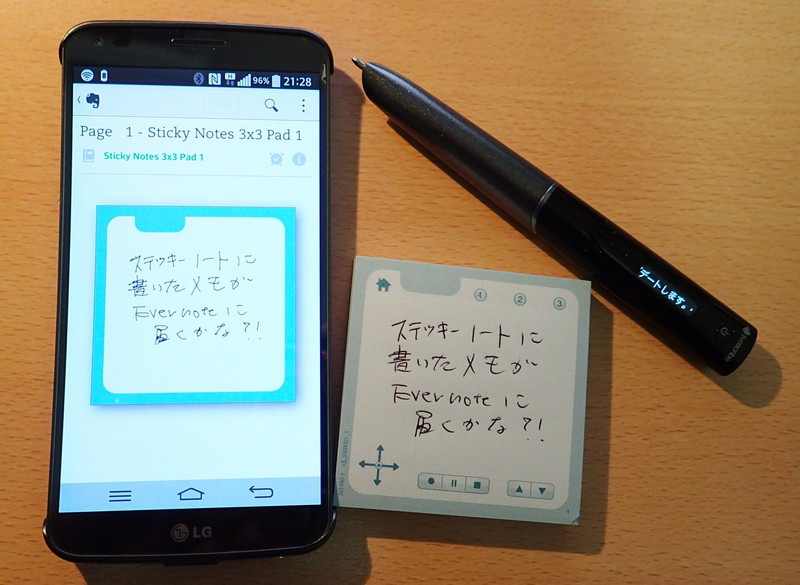 96% 21:28
Page 1 - Sticky Notes 3x3 Pad 1
Sticky Notes 3x3 Pad 1
ステッキーノートに
書いたメモが
Evernoteに
届くかな?!
LG
1 2 3
ステッキーノートに
書いたメモが
Evernoteに
届くかな?!
デートします。